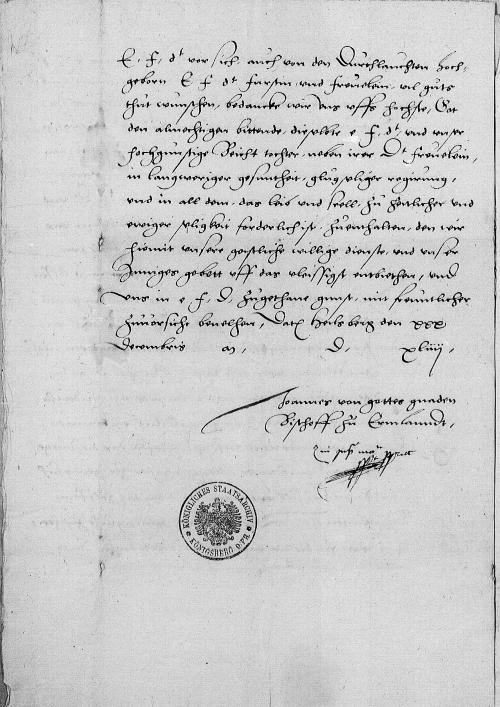 E. f. dt vor sich, auch von den Durchlauchten hoch-
gebornn E f dt furstin und freuelein, vil guts
thut wunschen, bedancke wir uns uffs hochste, Got
den almechtigen bittende, dieselbte e. f. dt. und unser
hochgunstige Beicht tochter, neben irer Dt freuelein,
in langweriger gesuntheit, glugseliger regirung,
und in all dem, das leib und seell, zu zeitlicher und
ewiger seligkeit forderlich ist, zuenthalten, den wir
hiemit unsere geistliche willige dienste, und unser
Inniges gebett uff das vleissigst entbiethen, und
uns in e. f. d. zugethane gunst, mit freuntlicher
zuvorsicht bevelhen, Datz Heilsberg den xxx
Decembris a. D. xliiij.
Joannes von gottes gnaden
Bischoff zu Ermlanndt,
KÖNIGLICHES STAATSARCHIV
KÖNIGSBERG O/PR.